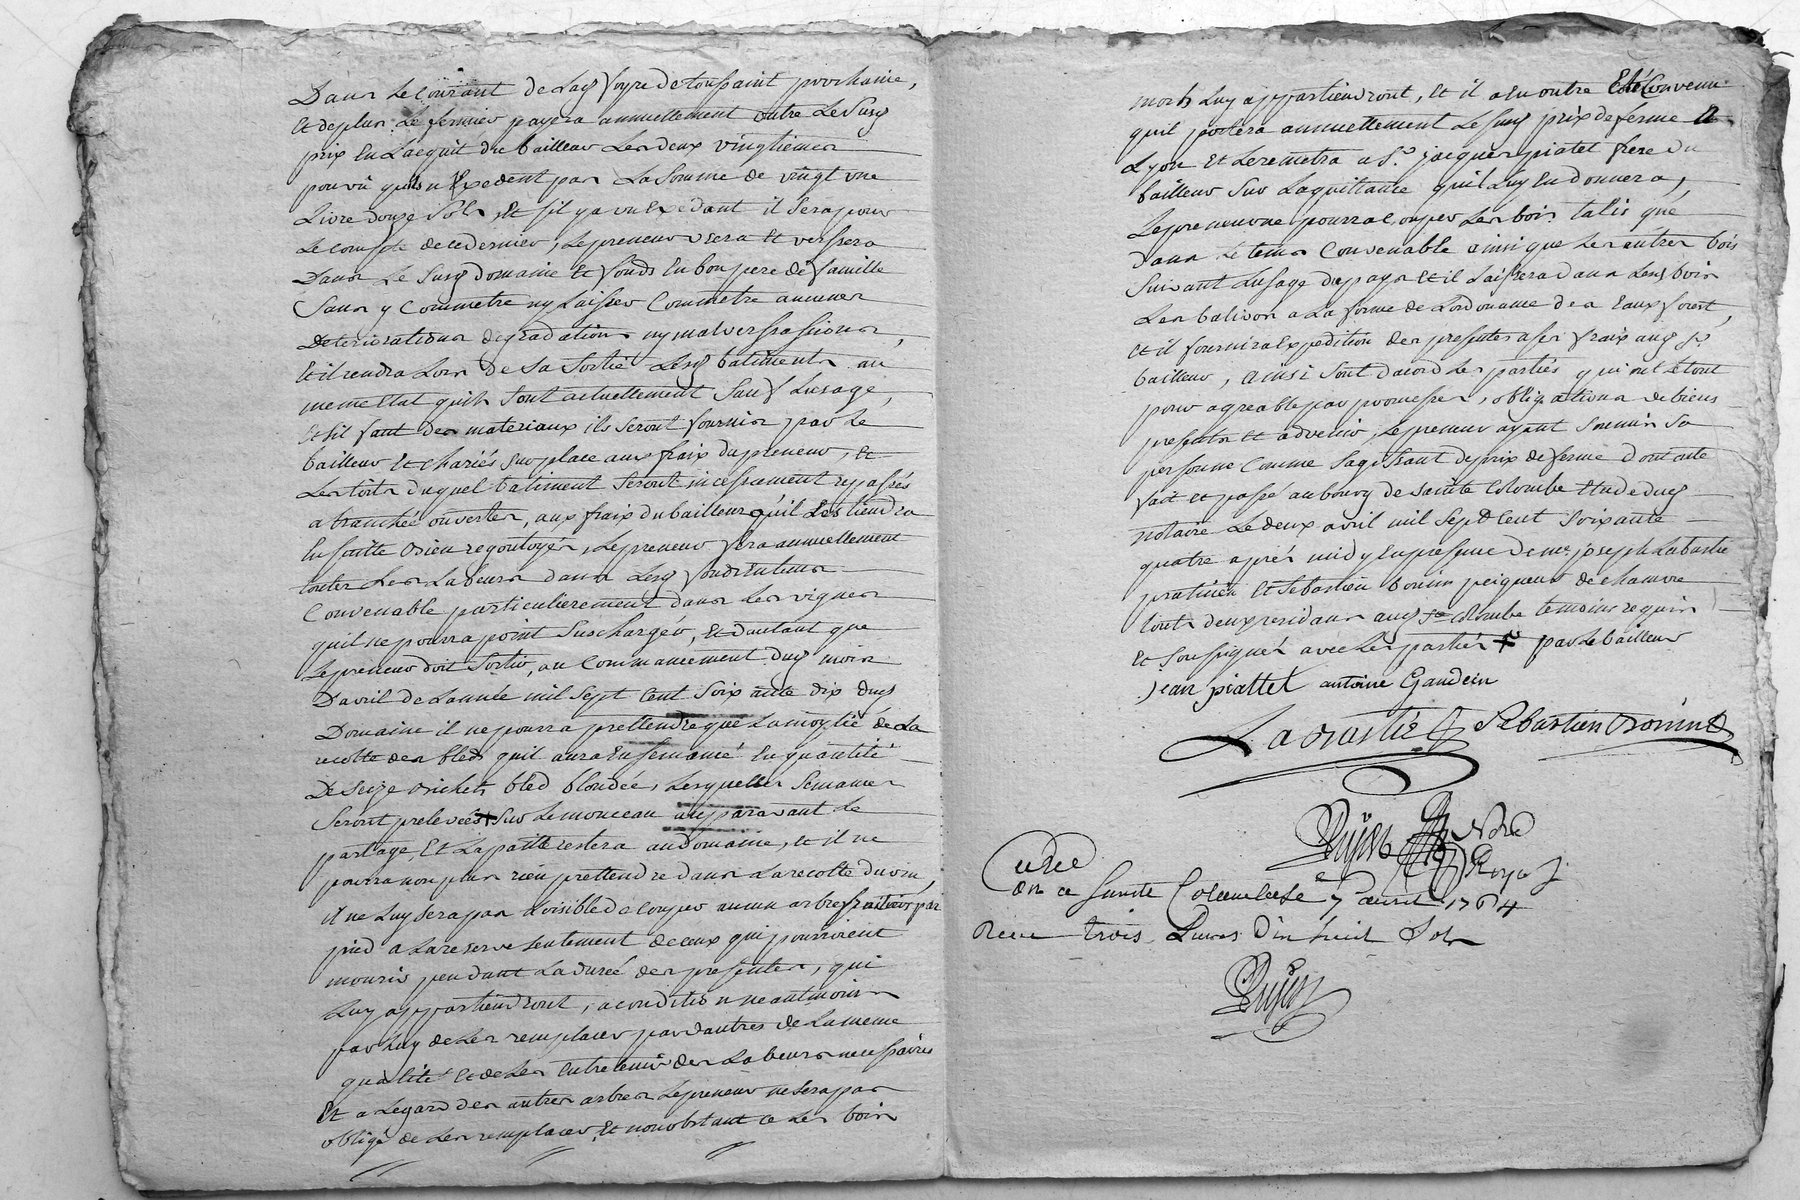 Dans le courant de lad foyre de toussaint prochaine,
Et de plus le fermier payera annuellement outre le susd
prix En Lacquit du bailleur Les deux vingtiemes
pourvu quils n'Exedent pas La somme de vingt une
Livre douze sols, Et sil y a un Exedant il sera pour
Le compte de ce dernier, le preneur usera et versera
Dans Le susd Domaine Et fonds En bon pere de famille
Sans y Commetre ny laisser Commetre aucunes
Deteriorations degradations ny malverssassions,
Et il rendra Lors de sa sortie lesd batiments au
meme Etat quils sont actuellement sauf Lusage,
Et sil faut des materiaux ils seront fournis par le
bailleur Et chariés sur place aux fraix du preneur, Et
Les toits duquel batiment seront incessament repassés
a tranchée ouverte, aux fraix du bailleur quil Les tiendra
En suitte bien regoutoyés, Le preneur fera annuellement
toutes Les Labeurs dans Lesd fonds En tems
Convenable particulierement dans Les vignes
quil ne pourra point surchargér, Et dautant que
Le preneur doit sortir, au Commancement dud mois
Davril de Lannée mil sept cent soixante dix dud
Domaine il ne pourra prettendre que La moytié de La
recolte des bleds quil aura Ensemancé En quantité
De seize bichets bled blondée, Lesquelles semances
Seront prelevées sur Le monceau auparavant le
partage, Et La paille restera au domaine, et il ne
pourra non plus rien prettendre dans La recolte du vin,
il ne Luy sera pas Loisible de couper aucun arbre fruitiers par
pied a La reserve seulement de ceux qui pourroient
mourir pendant La durée des presentes, qui
Luy appartiendront, a condition neantmoins
par Luy de Les remplacer par dautres de La meme
qualité Et de Les Entretenir des Labeurs necessaires
Et a Legard des autres arbres Le preneur ne sera pas
obligé de Les remplacer, Et nonobstant ce Les bois
morts Luy appartiendront, Et il a En outre Eté Convenu
quil portera annuellement Le susd prix de ferme a
Lyon Et Le remetra a Sr. jacques piatet frere du
bailleur sur La quittance quil Luy En donnera,
Le preneur ne pourra Couper Les bois talis que
dans Le tems Convenable ainsi que Les autres bois
suivant Lusage du pays Et il Laissera dans Lesd bois
Les balivos a La forme de Lordonance des Eaux forest,
Et il fournira Expedition des presentes a ses fraix aud Sr.
bailleur, ainsi sont dacord Les parties qui ont Le tout
pour agreable par promesses, obligations de biens
presents et advenir, Le preneur ayant soumis sa
personne Comme sagissant de prix de ferme dont acte
fait et passé au bourg de sainte Colombe Etude dud
notaire Le deux avril mil sept Cent soixante
quatre aprés midy En presence de me. joseph Labastie
praticien Et Sebastien bonin peigneur de chanvre
touts deux residans aud ste Colombe temoins requis
Et soussignés avec Les parties par Le bailleur
jean piattet antoine Gandein
Labastie Sebastien Bonin
Royal
a Sainte Colombe le 7 avril 1764
Recu trois Livres Dix huit Sols